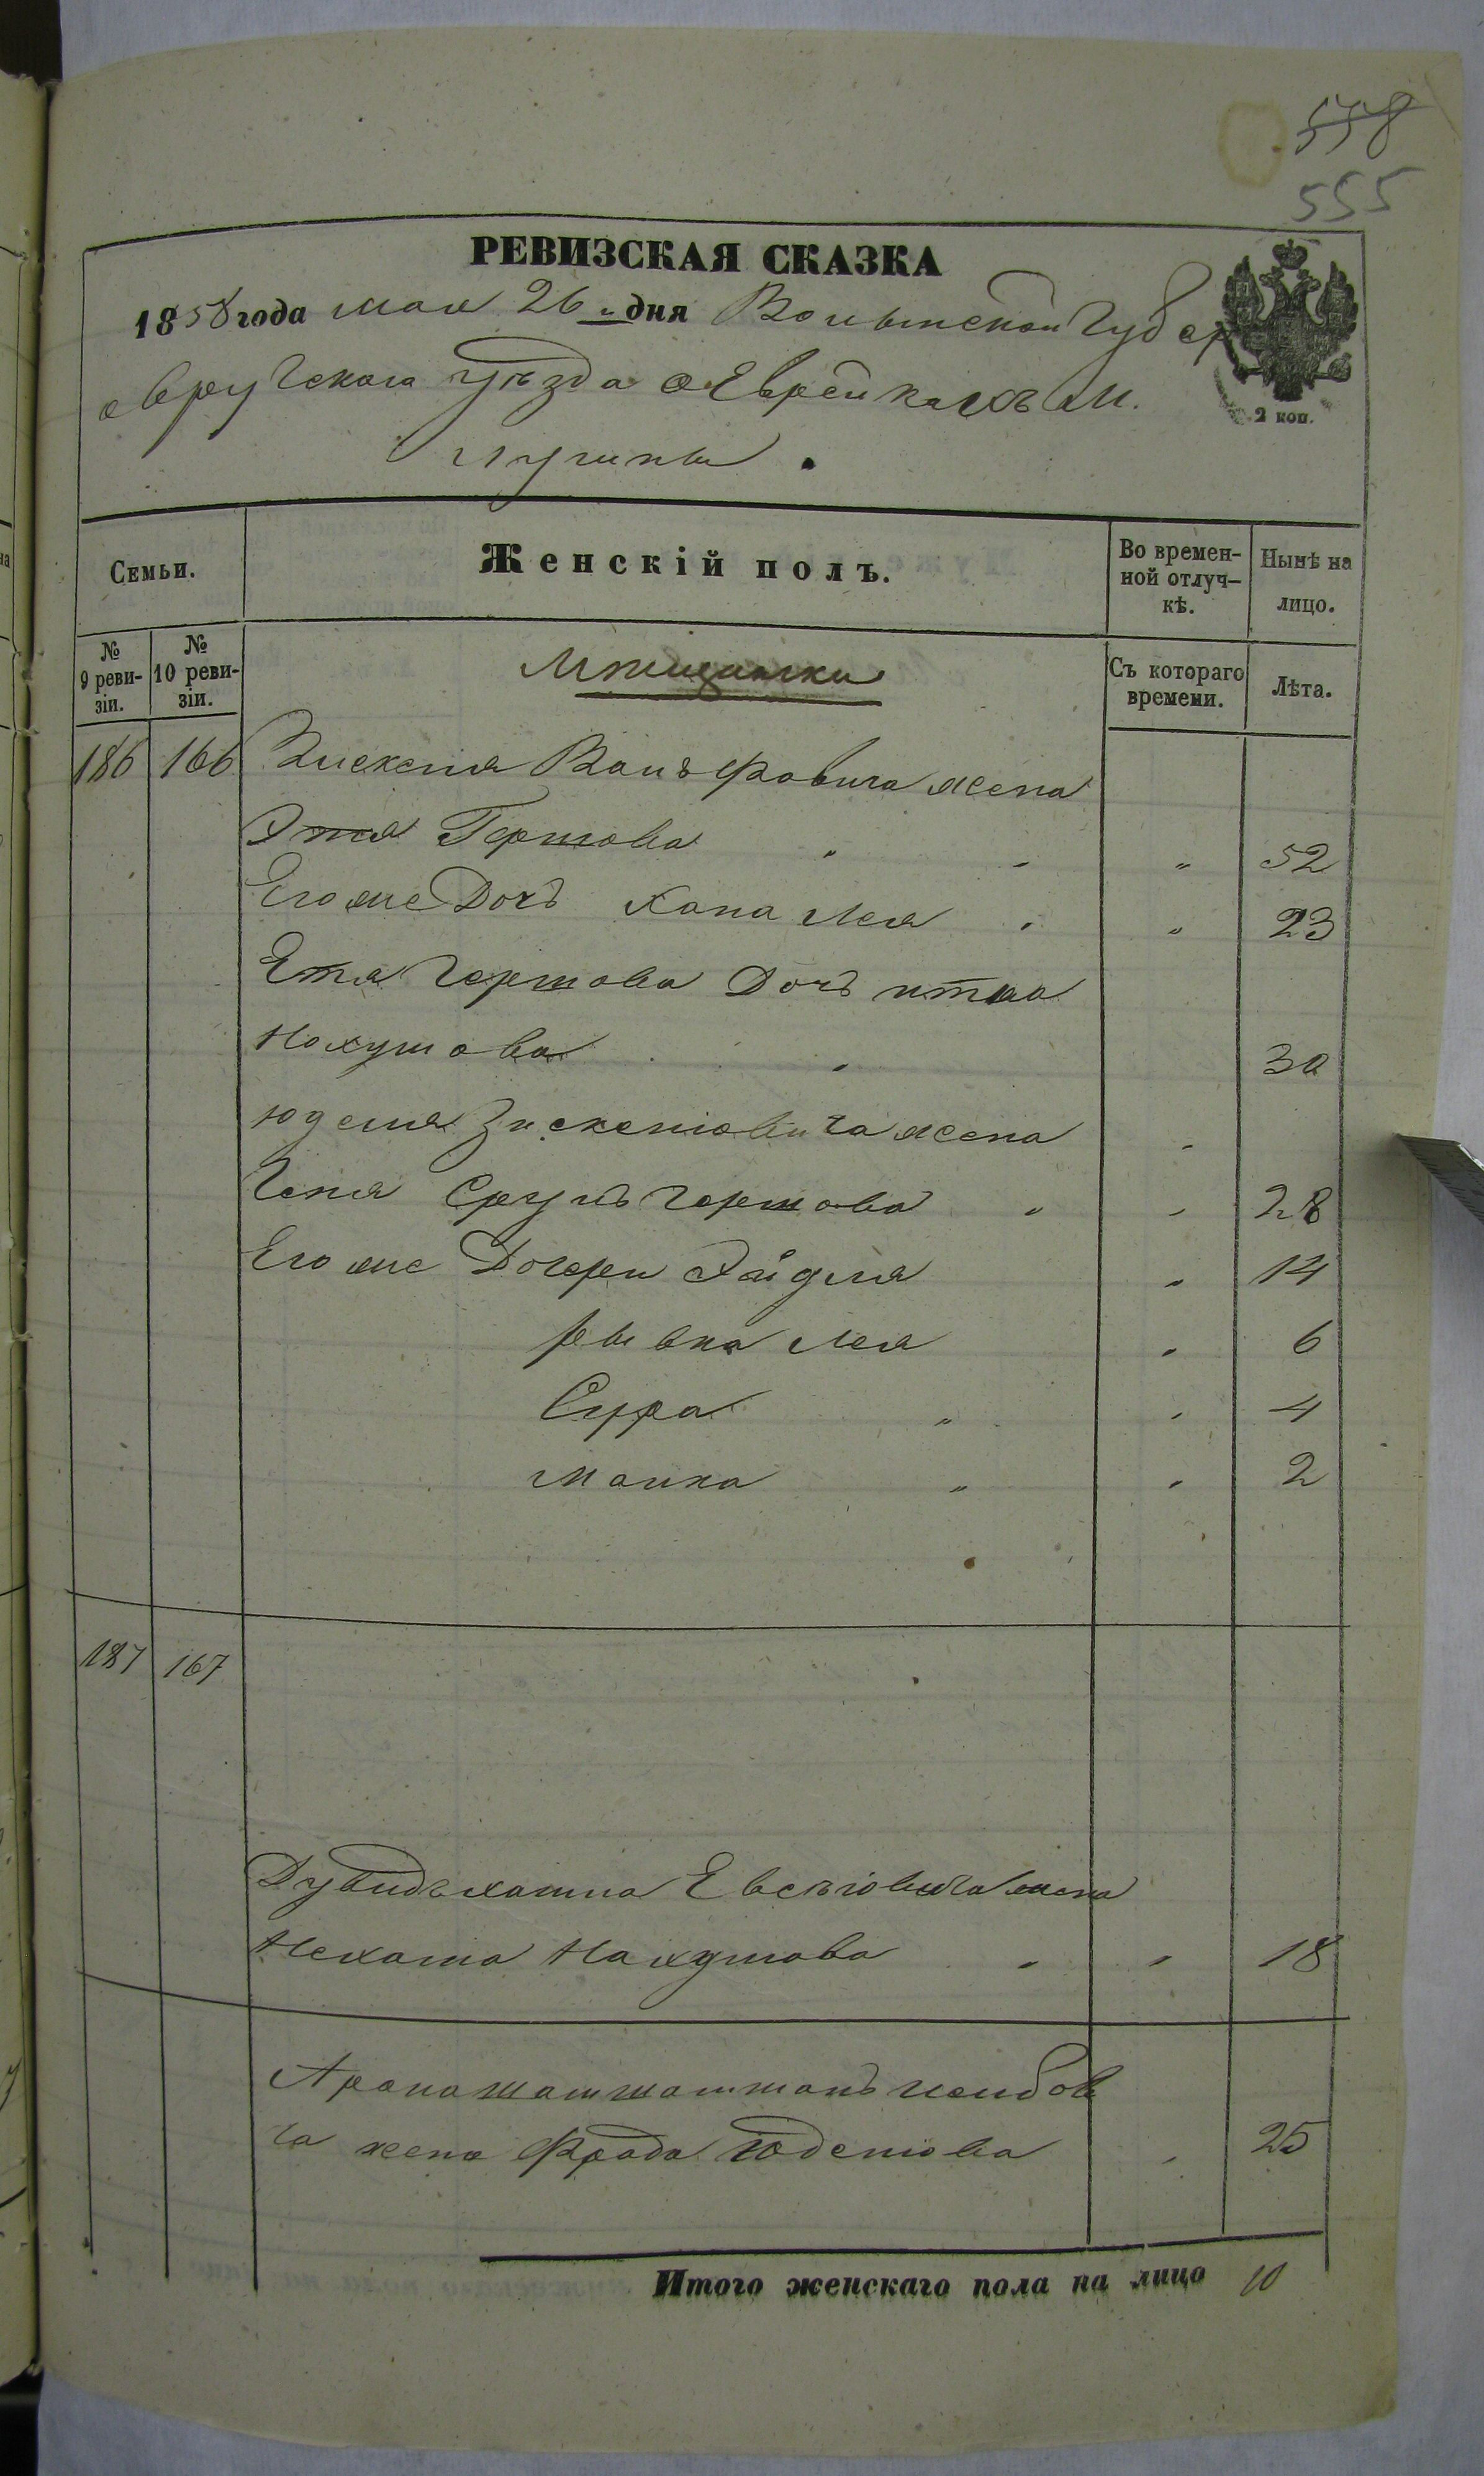 558
555
РЕВИЗСКАЯ СКАЗКА
1858 года мая 26 дня Волынской Губер
овручскаго уѣзда о Еврейкахъ м.
Лугины.
2 коп.
Семьи.
Женскій полъ.
Во времен-
ной отлуч-
кѣ.
Нынѣ на
лицо.
№
9 реви-
зіи.
№
10 реви-
зіи.
Мѣщанки
Съ котораго
времени.
Лѣта.
186 166 Зискеля Вольфовича жена
Этя Гершова " " " 52
Егоже Дочь Хана Лея " " 23
Етя Гершова Дочь
Нахумова " 30
Юделя Зискелювича жена "
Геня Сруль Гершова " " 28
Егоже Дочери Эйдля " 14
Рывка Лея " 6
Сура " " 4
Малка " " 2
187 167
Евселіовича жена
Нехама Нахумова " " 18
ча жена Фрада Юделіова " 25
Итого женскаго пола на лицо 10